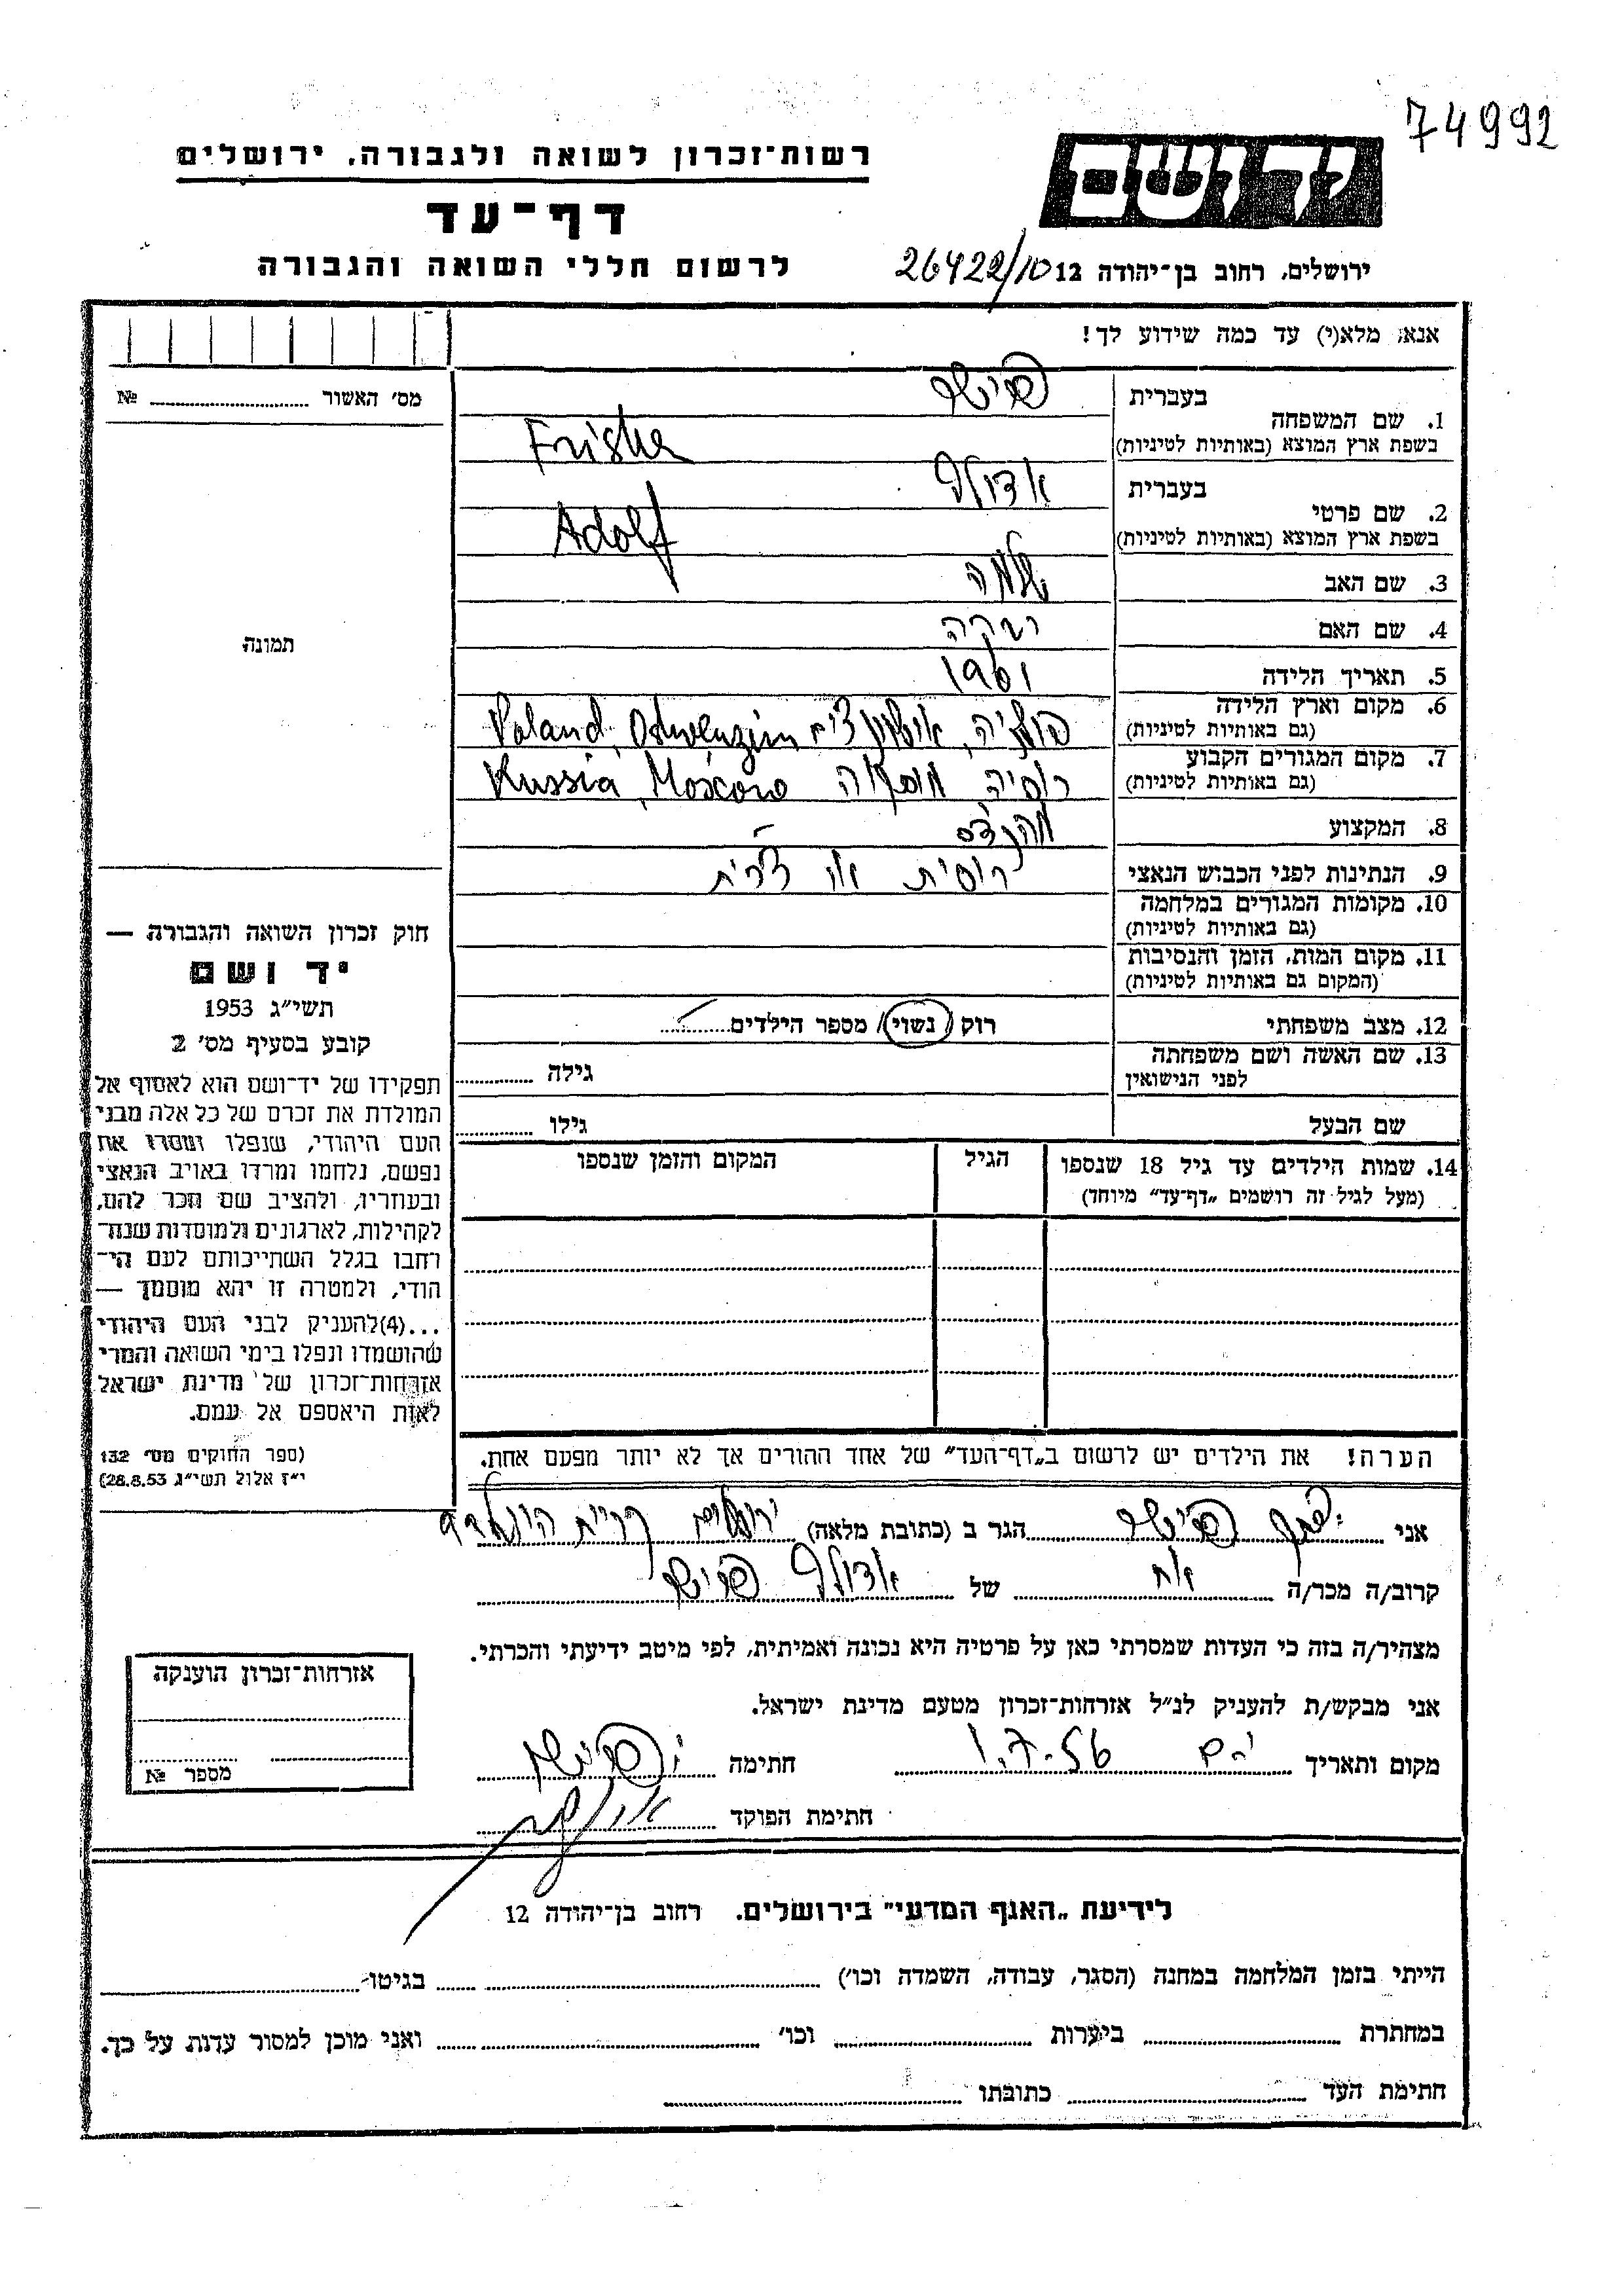 74992
יד ושם
רשות־זכרון לשואה ולגבורה, ירושלים
דף־עד
לרשום חללי השואה והגבורה
ירושלים, רחוב בן־יהודה 12
26422/10
אנא, מלא(י) עד כמה שידוע לך!
מס׳ האשור № 
תמונה
1. שם המשפחה
בעברית
בשפת ארץ המוצא (באותיות לטיניות)
Frishe
2. שם פרטי
בעברית אדולף
בשפת ארץ המוצא (באותיות לטיניות) Adolf
3. שם האב שלמה
4. שם האם רבקה
5. תאריך הלידה 1901
6. מקום וארץ הלידה
(גם באותיות לטיניות)
פולניה, Poland,
7. מקום המגורים הקבוע
(גם באותיות לטיניות)
רוסיה מוסקוה Russia, Moscow
8. המקצוע מהנדס
9. הנתינות לפני הכבוש הנאצי רוסית או
10. מקומות המגורים במלחמה
(גם באותיות לטיניות)
11. מקום המות, הזמן והנסיבות
(המקום גם באותיות לטיניות)
12. מצב משפחתי רוק / נשוי / מספר הילדים
13. שם האשה ושם משפחתה
לפני הנישואין
גילה
שם הבעל גילו
14. שמות הילדים עד גיל 18 שנספו
(מעל לגיל זה רושמים „דף־עד” מיוחד)
הגיל
המקום והזמן שנספו
הערה! את הילדים יש לרשום ב„דף־העד” של אחד ההורים אך לא יותר מפעם אחת.
חוק זכרון השואה והגבורה —
יד ושם
תשי״ג 1953
קובע בסעיף מס׳ 2
תפקידו של יד־ושם הוא לאסוף אל
המולדת את זכרם של כל אלה מבני
העם היהודי, שנפלו ומסרו את
נפשם, נלחמו ומרדו באויב הנאצי
ובעוזריו, ולהציב שם וזכר להם,
לקהילות, לארגונים ולמוסדות שנח־
רחבו בגלל השתייכותם לעם הי־
הודי, ולמטרה זו יהא מוסמך —
...(4)להעניק לבני העם היהודי
שהושמדו ונפלו בימי השואה והמרי
אזרחות־זכרון של מדינת ישראל
לאות היאספם אל עמם.
(ספר החוקים מס׳ 132
י״ז אלול תשי״ג 28.8.53)
אני הגר ב (כתובת מלאה) ירושלים קרית היובל
קרוב/ה מכר/ה אח של אדולף
מצהיר/ה בזה כי העדות שמסרתי כאן על פרטיה היא נכונה ואמיתית, לפי מיטב ידיעתי והכרתי.
אני מבקש/ת להעניק לנ״ל אזרחות־זכרון מטעם מדינת ישראל.
מקום ותאריך 1.7.56 חתימה
חתימת הפוקד
אזרחות־זכרון הוענקה
מספר №
לידיעת „האגף המדעי” בירושלים. רחוב בן־יהודה 12
הייתי בזמן המלחמה במחנה (הסגר, עבודה, השמדה וכו׳) בגיטו
במחתרת ביערות וכו׳ ואני מוכן למסור עדות על כך.
חתימת העד כתובתו